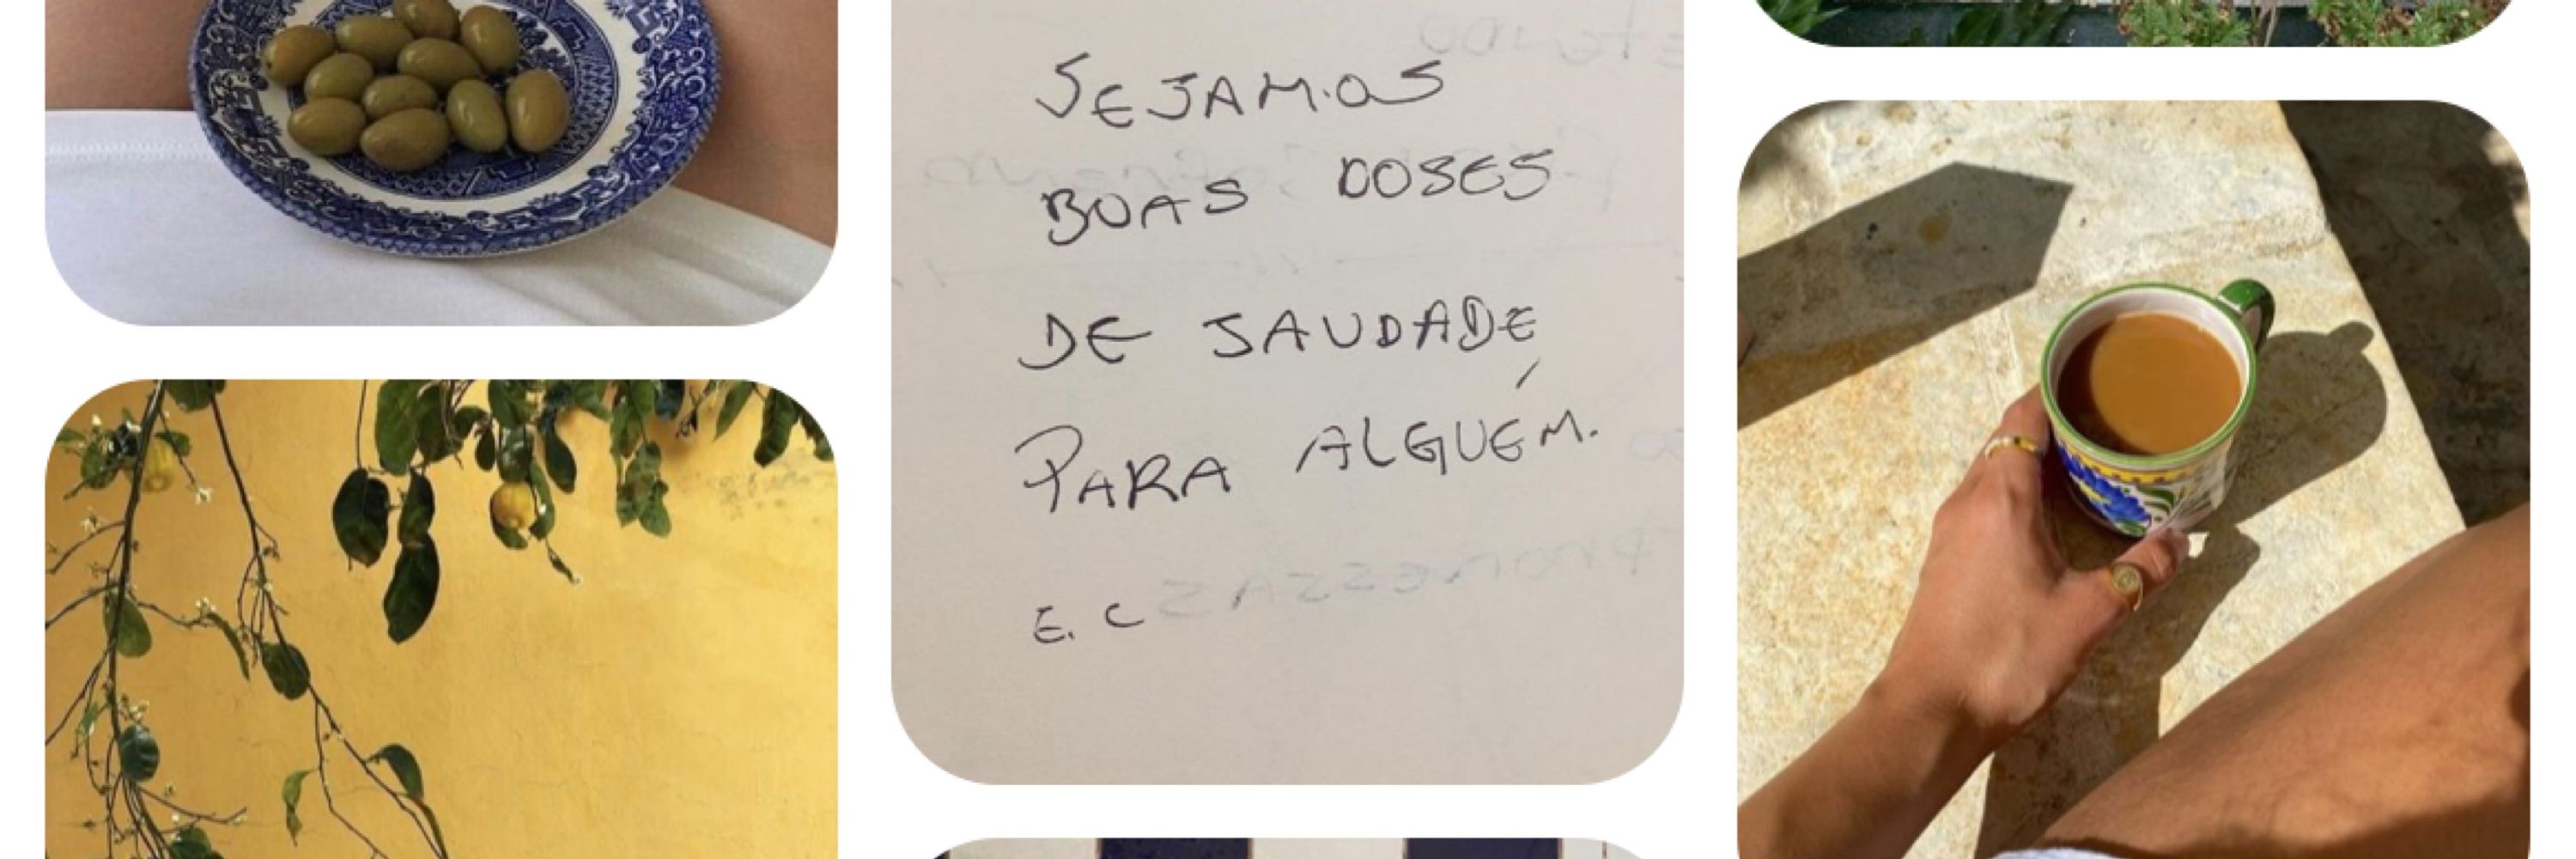 SEJAMOS
BOAS DOSES
DE SAUDADE
PARA ALGUÉM.
E. C